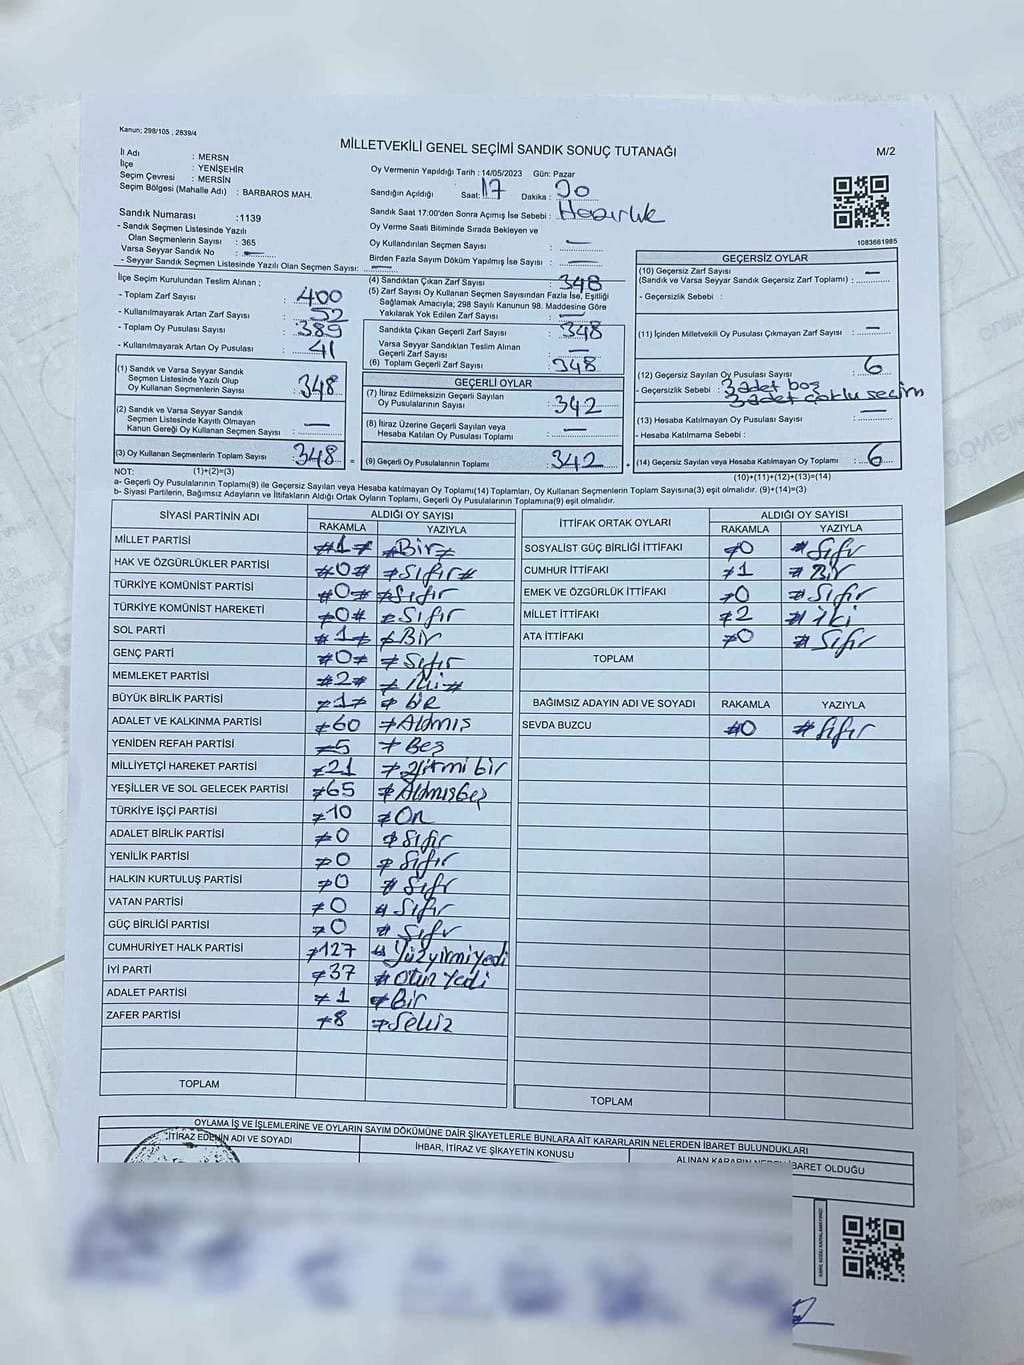 Kanun; 298/105 , 2839/4
MİLLETVEKİLİ GENEL SEÇİMİ SANDIK SONUÇ TUTANAĞI
M/2
İl Adı : MERSN
İlçe : YENİŞEHİR
Seçim Çevresi : MERSİN
Seçim Bölgesi (Mahalle Adı) : BARBAROS MAH.
Sandık Numarası :1139
- Sandık Seçmen Listesinde Yazılı
Olan Seçmenlerin Sayısı : 365
Varsa Seyyar Sandık No : —
- Seyyar Sandık Seçmen Listesinde Yazılı Olan Seçmen Sayısı: —
Oy Vermenin Yapıldığı Tarih : 14/05/2023 Gün: Pazar
Sandığın Açıldığı Saat: 17 Dakika : 30
Sandık Saat 17:00'den Sonra Açımış İse Sebebi : Hazırlık
Oy Verme Saati Bitiminde Sırada Bekleyen ve
Oy Kullandırılan Seçmen Sayısı : —
Birden Fazla Sayım Döküm Yapılmış İse Sayısı : —
1083661985
İlçe Seçim Kurulundan Teslim Alınan ;
- Toplam Zarf Sayısı : 400
- Kullanılmayarak Artan Zarf Sayısı : 52
- Toplam Oy Pusulası Sayısı : 389
- Kullanılmayarak Artan Oy Pusulası : 41
(1) Sandık ve Varsa Seyyar Sandık
Seçmen Listesinde Yazılı Olup
Oy Kullanan Seçmenlerin Sayısı : 348
(2) Sandık ve Varsa Seyyar Sandık
Seçmen Listesinde Kayıtlı Olmayan
Kanun Gereği Oy Kullanan Seçmen Sayısı : —
(3) Oy Kullanan Seçmenlerin Toplam Sayısı : 348 =
(4) Sandıktan Çıkan Zarf Sayısı : 348
(5) Zarf Sayısı Oy Kullanan Seçmen Sayısından Fazla İse, Eşitliği
Sağlamak Amacıyla; 298 Sayılı Kanunun 98. Maddesine Göre
Yakılarak Yok Edilen Zarf Sayısı : —
Sandıkta Çıkan Geçerli Zarf Sayısı : 348
Varsa Seyyar Sandıktan Teslim Alınan
Geçerli Zarf Sayısı : —
(6) Toplam Geçerli Zarf Sayısı : 348
GEÇERLİ OYLAR
(7) İtiraz Edilmeksizin Geçerli Sayılan
Oy Pusulalarının Sayısı : 342
(8) İtiraz Üzerine Geçerli Sayılan veya
Hesaba Katılan Oy Pusulası Toplamı : —
(9) Geçerli Oy Pusulalarının Toplamı : 342 +
GEÇERSİZ OYLAR
(10) Geçersiz Zarf Sayısı
(Sandık ve Varsa Seyyar Sandık Geçersiz Zarf Toplamı) : —
- Geçersizlik Sebebi :
(11) İçinden Milletvekili Oy Pusulası Çıkmayan Zarf Sayısı : —
(12) Geçersiz Sayılan Oy Pusulası Sayısı : 6
- Geçersizlik Sebebi : 3 adet boş
3 adet çoklu seçim
(13) Hesaba Katılmayan Oy Pusulası Sayısı : —
- Hesaba Katılmama Sebebi :
(14) Geçersiz Sayılan veya Hesaba Katılmayan Oy Toplamı : 6
NOT: (1)+(2)=(3)
(10)+(11)+(12)+(13)=(14)
a- Geçerli Oy Pusulalarının Toplamı(9) ile Geçersiz Sayılan veya Hesaba Katılmayan Oy Toplamı(14) Toplamları, Oy Kullanan Seçmenlerin Toplam Sayısına(3) eşit olmalıdır. (9)+(14)=(3)
b- Siyasi Partilerin, Bağımsız Adayların ve İttifakların Aldığı Ortak Oyların Toplamı, Geçerli Oy Pusulalarının Toplamına(9) eşit olmalıdır.
SİYASİ PARTİNİN ADI ALDIĞI OY SAYISI
RAKAMLA YAZIYLA
MİLLET PARTİSİ #1# #Bir#
HAK VE ÖZGÜRLÜKLER PARTİSİ #0# #Sıfır#
TÜRKİYE KOMÜNİST PARTİSİ #0# #Sıfır
TÜRKİYE KOMÜNİST HAREKETİ #0# #Sıfır
SOL PARTİ #1# #Bir
GENÇ PARTİ #0# #Sıfır
MEMLEKET PARTİSİ #2# #İki#
BÜYÜK BİRLİK PARTİSİ #1# #bir
ADALET VE KALKINMA PARTİSİ #60 #Altmış
YENİDEN REFAH PARTİSİ #5 #Beş
MİLLİYETÇİ HAREKET PARTİSİ #21 #Yirmi bir
YEŞİLLER VE SOL GELECEK PARTİSİ #65 #Altmışbeş
TÜRKİYE İŞÇİ PARTİSİ #10 #On
ADALET BİRLİK PARTİSİ #0 #Sıfır
YENİLİK PARTİSİ #0 #Sıfır
HALKIN KURTULUŞ PARTİSİ #0 #Sıfır
VATAN PARTİSİ #0 #Sıfır
GÜÇ BİRLİĞİ PARTİSİ #0 #Sıfır
CUMHURİYET HALK PARTİSİ #127 #Yüzyirmiyedi
İYİ PARTİ #37 #Otuz Yedi
ADALET PARTİSİ #1 #Bir
ZAFER PARTİSİ #8 #Sekiz
TOPLAM
İTTİFAK ORTAK OYLARI ALDIĞI OY SAYISI
RAKAMLA YAZIYLA
SOSYALİST GÜÇ BİRLİĞİ İTTİFAKI #0 #Sıfır
CUMHUR İTTİFAKI #1 #Bir
EMEK VE ÖZGÜRLÜK İTTİFAKI #0 #Sıfır
MİLLET İTTİFAKI #2 #iki
ATA İTTİFAKI #0 #Sıfır
TOPLAM
BAĞIMSIZ ADAYIN ADI VE SOYADI RAKAMLA YAZIYLA
SEVDA BUZCU #0 #Sıfır
TOPLAM
OYLAMA İŞ VE İŞLEMLERİNE VE OYLARIN SAYIM DÖKÜMÜNE DAİR ŞİKAYETLERLE BUNLARA AİT KARARLARIN NELERDEN İBARET BULUNDUKLARI
İTİRAZ EDENİN ADI VE SOYADI
İHBAR, İTİRAZ VE ŞİKAYETİN KONUSU
ALINAN KARARIN NEDEN İBARET OLDUĞU